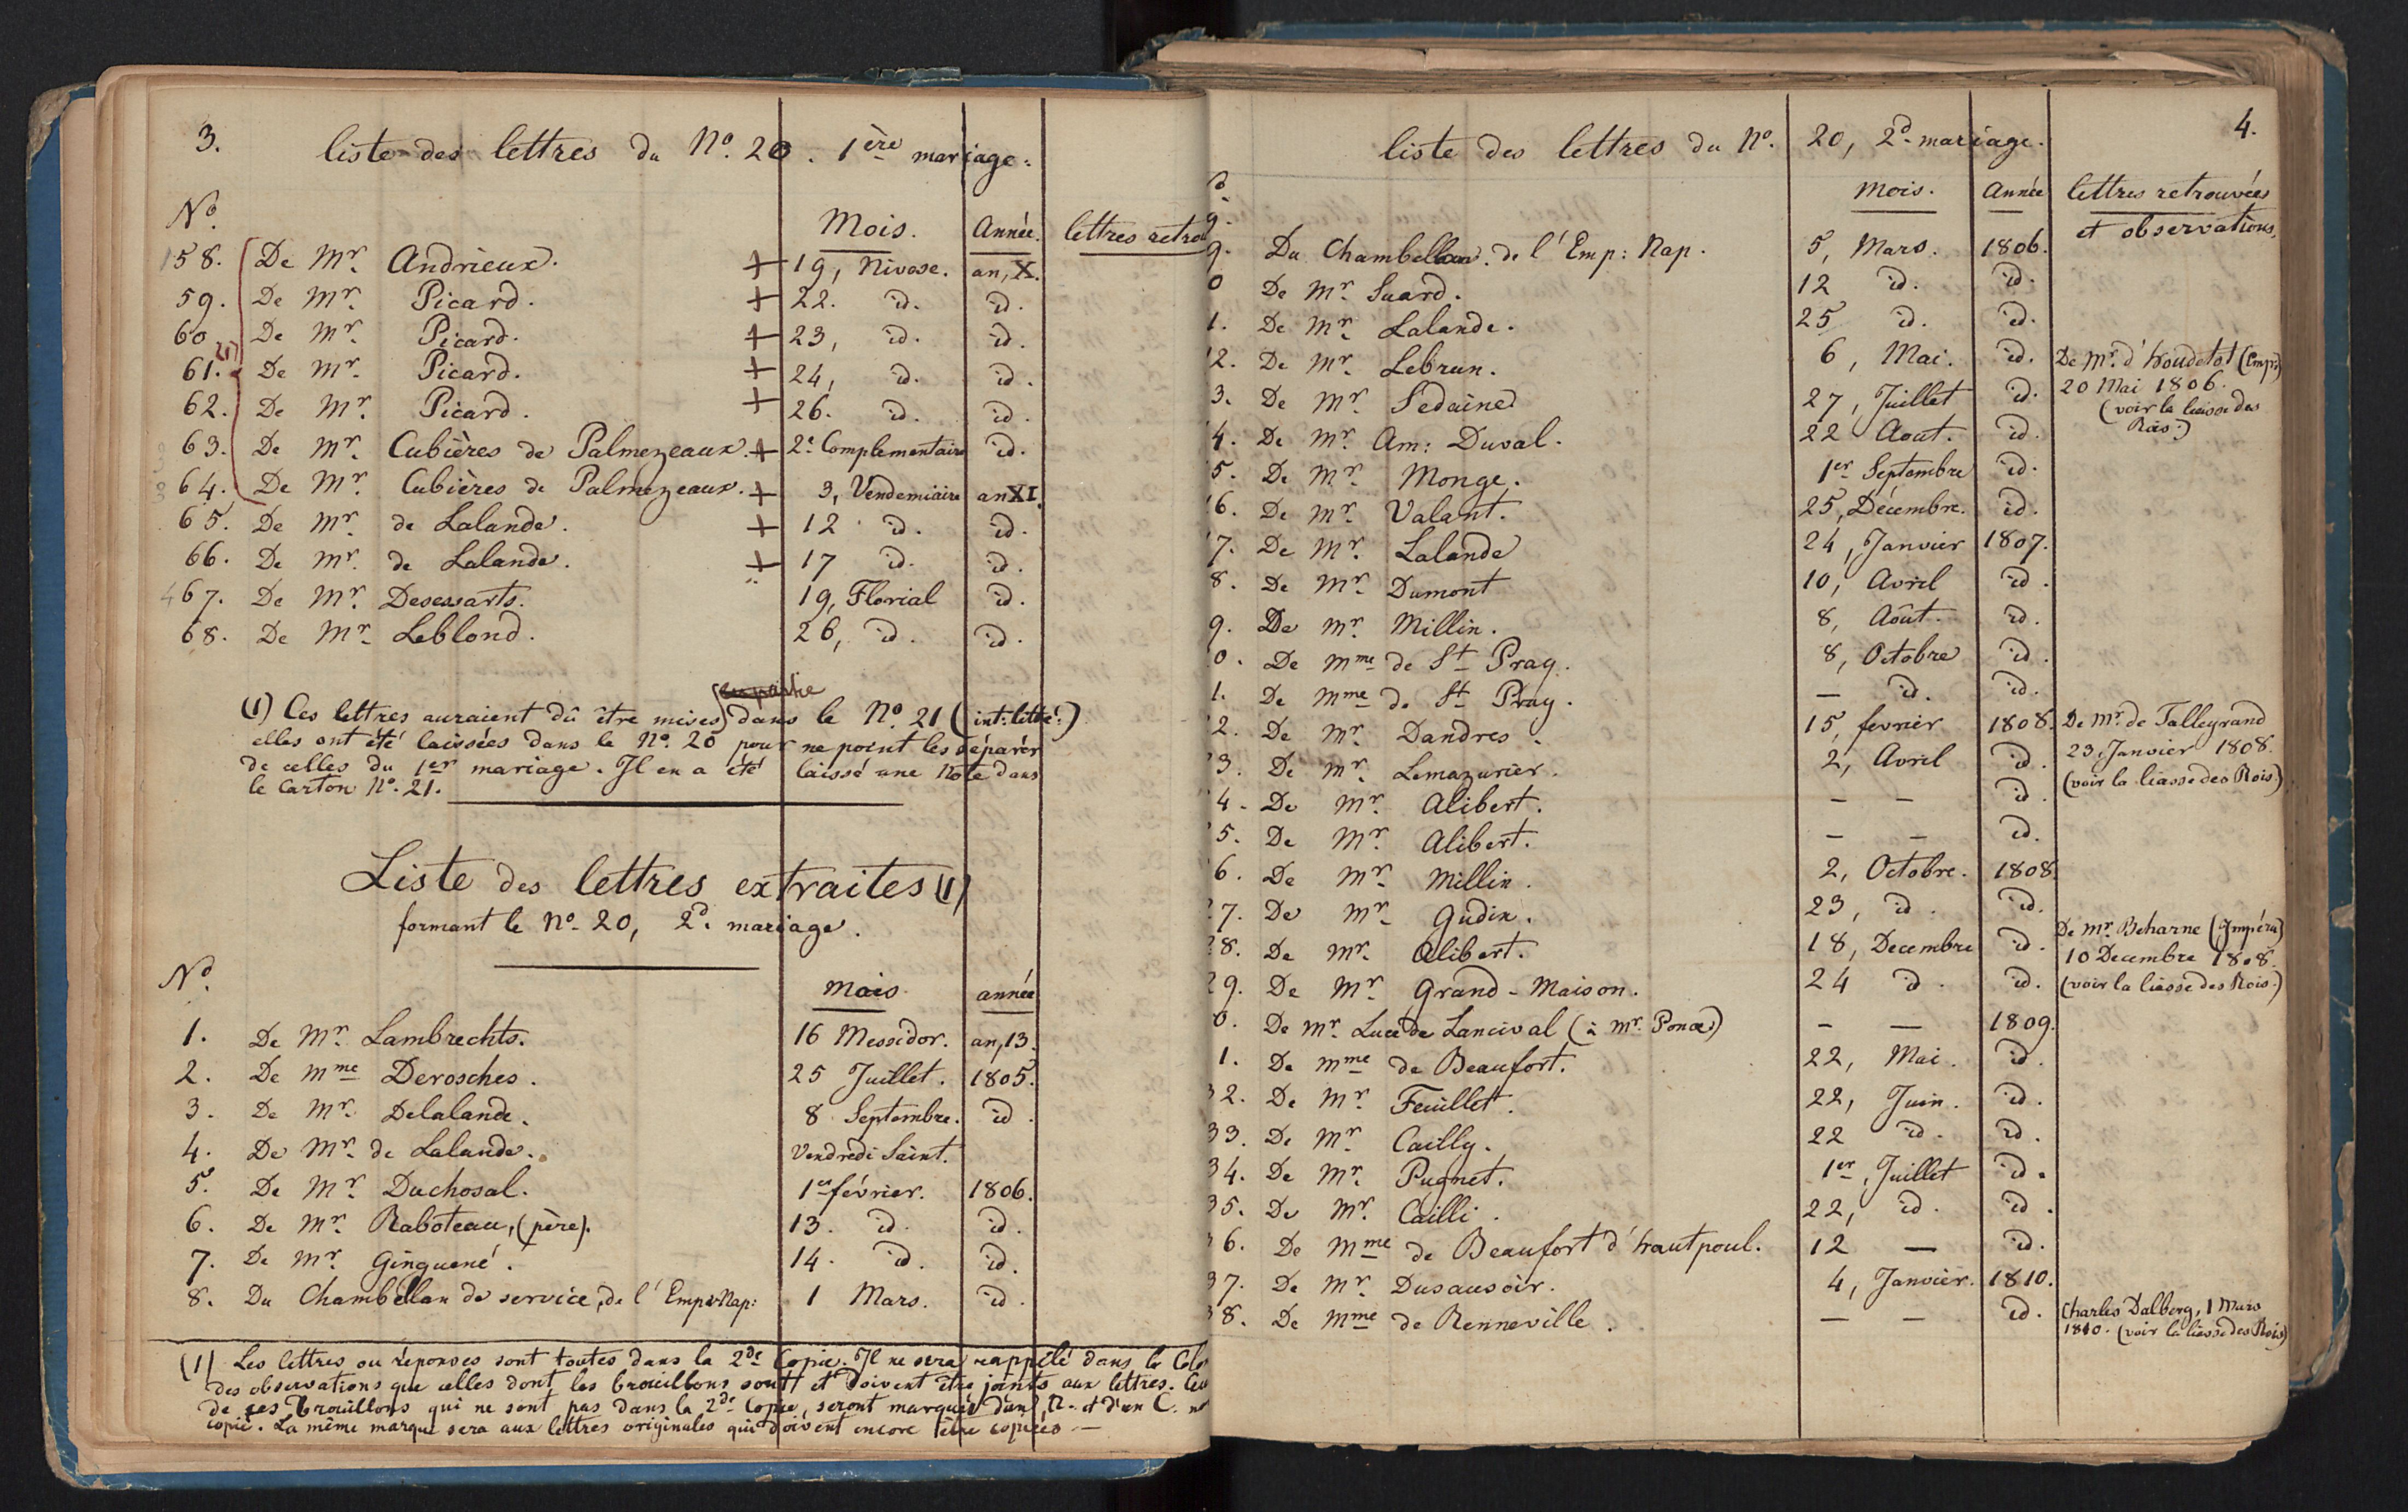 3.
liste des lettres du Nº. 20. 1ère mariage.
Nº. Mois. Année. lettres retrou
158. De Mr. Andrieux. + 19, Nivose. an, X.
59. De Mr. Picard. + 22. id. id.
60 De Mr. Picard. + 23, id. id.
61. De Mr. Picard. + 24, id. id.
62. De Mr. Picard. + 26. id. id.
63. De Mr. Cubières de Palmezeaux. + 2e Complementaire id.
64. De Mr. Cubières de Palmezeaux. + 3, Vendemiaire an XI.
65. De Mr. de Lalande. + 12 id. id.
66. De Mr. de Lalande. + 17 id. id.
467. De Mr. Desessarts. 19, Florial id.
68. De Mr. Leblond. 26, id. id.
en partie
(1) Ces lettres auraient dû être mises dans le Nº. 21 (int: litté:)
elles ont été laissées dans le Nº. 20 pour ne point les séparer
de celles du 1er mariage. Il en a été laissé une Note dans
le Carton Nº. 21.
Liste des lettres extraites (1)
formant le Nº. 20, 2d. mariage.
Nº. mois année
1. De Mr. Lambrechts. 16 Messidor. an, 13.
2. De Mme Derosches. 25 Juillet. 1805.
3. De Mr. Delalande. 8 Septembre. id.
4. De Mr. de Lalande. Vendredi Saint.
5. De Mr. Duchosal. 1er février. 1806.
6. De Mr. Raboteau, (père). 13. id. id.
7. De Mr. Ginguené. 14. id. id.
8. Du Chambellan de service, de l'Emp. Nap: 1 Mars. id.
(1) Les lettres ou réponses sont toutes dans la 2de Copie. Il ne sera rappelé dans la Colo
des observations que celles dont les brouillons sont et doivent être joints aux lettres. Ceu
de ces brouillons qui ne sont pas dans la 2de Copie, seront marqués d'un N. et d'un C. no
copié. La même marque sera aux lettres originales qui doivent encore être copiées —
4.
liste des lettres du Nº. 20, 2d. mariage.
mois. année lettres retrouvées
et observations.
9. Du Chambellan de l'Emp: Nap. 5, Mars. 1806.
0 De Mr. Suard. 12 id. id.
1. De Mr. Lalande. 25 id. id.
12. De Mr. Lebrun. 6, Mai. id. De Mr. d'houdetot (Emp:)
20 Mai 1806.
3. De Mr. Sedaine 27, Juillet id. (voir la liasse des
Rois.)
4. De Mr. Am: Duval. 22 Aout. id.
5. De Mr. Monge. 1er Septembre id.
16. De Mr. Valant. 25, Décembre. id.
7. De Mr. Lalande 24, Janvier 1807.
8. De Mr. Dumont 10, Avril id.
9. De Mr. Millin. 8, Août. id.
0. De Mme de St. Pray. 8, Octobre id.
1. De Mme de St. Pray. — id. id.
2. De Mr. Dandres. 15, fevrier 1808. De Mr. de Talleyrand
3. De Mr. Lemazurier. 2, Avril id. 23, Janvier 1808.
(voir la liasse des Rois)
4. De Mr. Alibert. — — id.
5. De Mr. Alibert. — — id.
6. De Mr. Millin. 2, Octobre. 1808.
27. De Mr. Gudin. 23, id. id.
28. De Mr. Alibert. 18, Decembre id. De Mr. Beharne (Impéra)
10 Decembre 1808.
29. De Mr. Grand-Maison. 24 id. id. (voir la liasse des Rois.)
0. De Mr. Luce de Lancival (à Mr. Ponce) — — 1809.
1. De Mme de Beaufort. 22, Mai. id.
32. De Mr. Feuillet. 22, Juin. id.
33. De Mr. Cailly. 22 id. id.
34. De Mr. Pugnet. 1er, Juillet id.
35. De Mr. Cailli. 22, id. id.
36. De Mme de Beaufort d'hautpoul. 12 — id.
37. De Mr. Dusausoir. 4, Janvier. 1810.
38. De Mme de Renneville. — — id. Charles Dalberg, 1 Mars
1810. (voir la liasse des Rois)